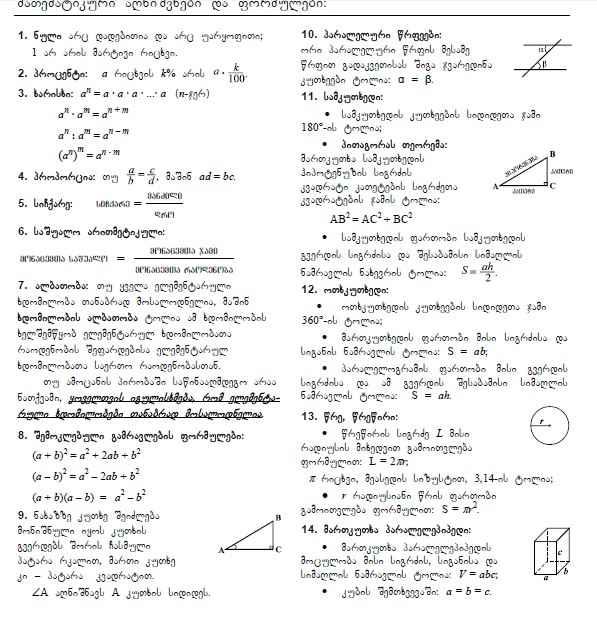 მათემატიკური აღნიშვნები და ფორმულები:
1. ნული არც დადებითია და არც უარყოფითი;
1 არ არის მარტივი რიცხვი.
2. პროცენტი: a რიცხვის k% არის a · k/100.
3. ხარისხი: aⁿ = a · a · a · ...· a (n-ჯერ)
aⁿ · aᵐ = aⁿ⁺ᵐ
aⁿ : aᵐ = aⁿ⁻ᵐ
(aⁿ)ᵐ = aⁿ·ᵐ
4. პროპორცია: თუ a/b = c/d, მაშინ ad = bc.
5. სიჩქარე: სიჩქარე = მანძილი/დრო
6. საშუალო არითმეტიკული:
მონაცემთა საშუალო = მონაცემთა ჯამი/მონაცემთა რაოდენობა
7. ალბათობა: თუ ყველა ელემენტარული
ხდომილობა თანაბრად მოსალოდნელია, მაშინ
ხდომილობის ალბათობა ტოლია ამ ხდომილობის
ხელშემწყობ ელემენტარულ ხდომილობათა
რაოდენობის შეფარდებისა ელემენტარულ
ხდომილობათა საერთო რაოდენობასთან.
თუ ამოცანის პირობაში საწინააღმდეგო არაა
ნათქვამი, ყოველთვის იგულისხმება, რომ ელემენტა-
რული ხდომილობები თანაბრად მოსალოდნელია.
8. შემოკლებული გამრავლების ფორმულები:
(a + b)² = a² + 2ab + b²
(a – b)² = a² – 2ab + b²
(a + b)(a – b) = a² – b²
9. ნახაზზე კუთხე შეიძლება
მონიშნული იყოს კუთხის
გვერდებს შორის ჩასმული
პატარა რკალით, მართი კუთხე
კი – პატარა კვადრატით.
∠A აღნიშნავს A კუთხის სიდიდეს.
B
A
C
10. პარალელური წრფეები:
ორი პარალელური წრფის მესამე
წრფით გადაკვეთისას შიგა ჯვარედინა
კუთხეები ტოლია: α = β.
α
β
11. სამკუთხედი:
• სამკუთხედის კუთხეების სიდიდეთა ჯამი
180°-ის ტოლია;
• პითაგორას თეორემა:
მართკუთხა სამკუთხედის
ჰიპოტენუზის სიგრძის
კვადრატი კათეტების სიგრძეთა
კვადრატების ჯამის ტოლია:
AB² = AC² + BC²
B
ჰიპოტენუზა
კათეტი
A
C
კათეტი
• სამკუთხედის ფართობი სამკუთხედის
გვერდის სიგრძისა და შესაბამისი სიმაღლის
ნამრავლის ნახევრის ტოლია: S = ah/2.
12. ოთხკუთხედი:
• ოთხკუთხედის კუთხეების სიდიდეთა ჯამი
360°-ის ტოლია;
• მართკუთხედის ფართობი მისი სიგრძისა და
სიგანის ნამრავლის ტოლია: S = ab;
• პარალელოგრამის ფართობი მისი გვერდის
სიგრძისა და ამ გვერდის შესაბამისი სიმაღლის
ნამრავლის ტოლია: S = ah.
13. წრე, წრეწირი:
• წრეწირის სიგრძე L მისი
რადიუსის მიხედვით გამოითვლება
ფორმულით: L = 2πr;
r
π რიცხვი, მეასედის სიზუსტით, 3,14-ის ტოლია;
• r რადიუსიანი წრის ფართობი
გამოითვლება ფორმულით: S = πr².
14. მართკუთხა პარალელეპიპედი:
• მართკუთხა პარალელეპიპედის
მოცულობა მისი სიგრძის, სიგანისა და
სიმაღლის ნამრავლის ტოლია: V = abc;
• კუბის შემთხვევაში: a = b = c.
c
b
a